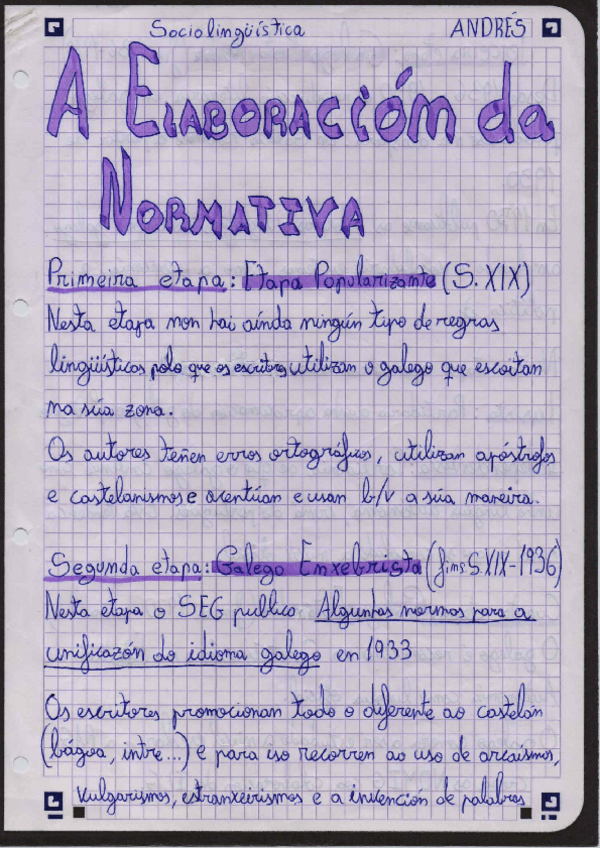 Sociolingüística ANDRÉS
A ELABORACIÓM da
NORMATIVA
Primeira etapa: Etapa Popularizante (S. XIX)
Nesta etapa non hai aínda ningún tipo de regras
lingüísticas polo que os escritores utilizan o galego que escoitan
na súa zona.
Os autores teñen erros ortográficos, utilizan apóstrofos
e castelanismos e acentúan e usan b/v a súa maneira.
Segunda etapa: Galego Enxebrista (fins S.XIX-1936)
Nesta etapa o SEG publico Alguhas normas para a
unificazón do idioma galego en 1933
Os escritores promocionan todo o diferente ao castelán
(bágoa, intre...) e para iso recorren ao uso de arcaísmos,
vulgarismos, estranxeirismos e a invención de palabras